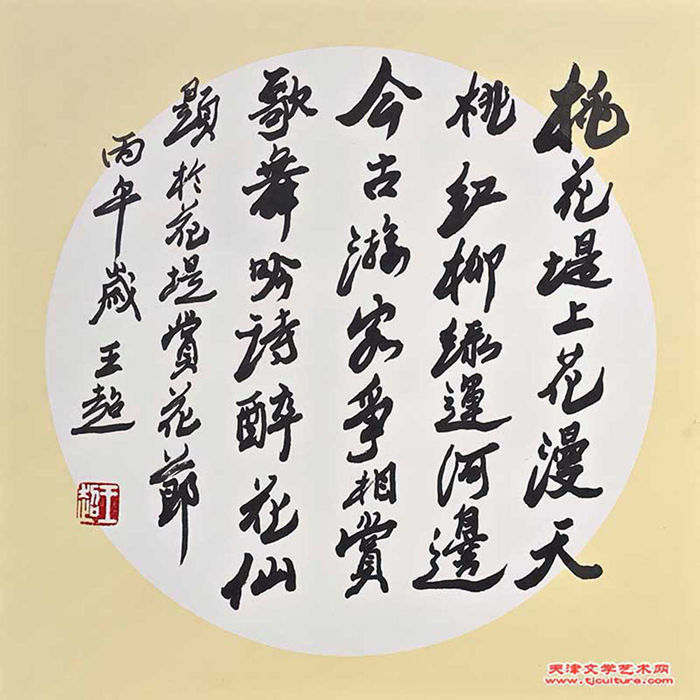 桃花堤上花漫天
桃红柳绿運河邊
今古游客爭相賞
歌舞吟诗醉花仙
題於花堤賞花節
丙午歲王超
王超
天津文学艺术网
www.tjculture.com